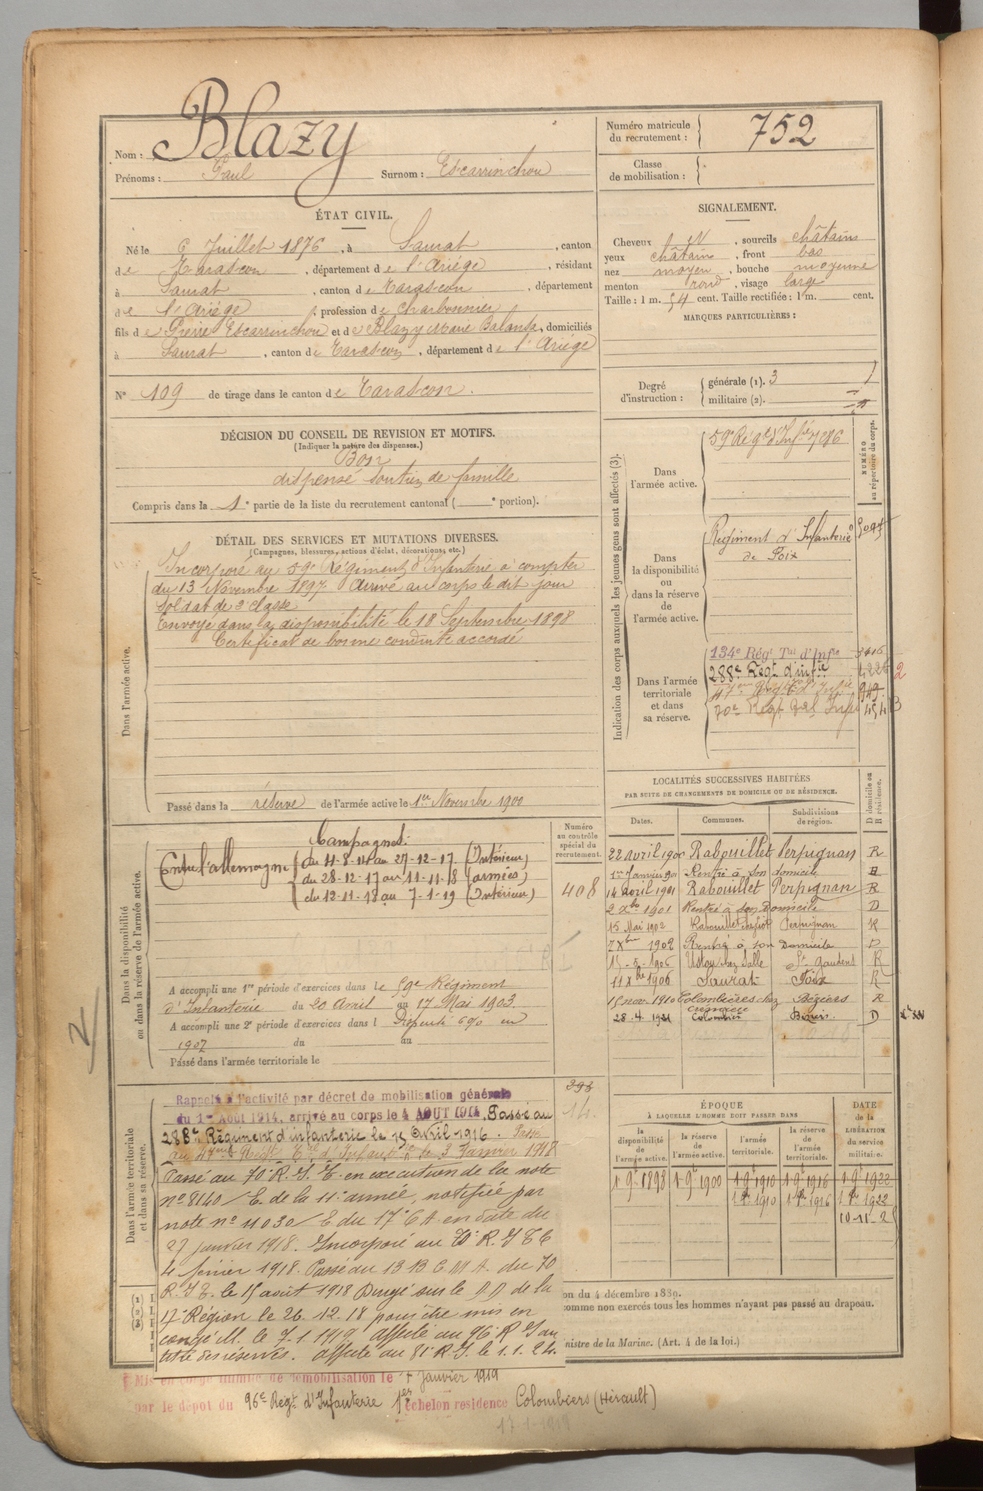 Nom : Blazy
Prénoms : Paul Surnom : Escarrinchou
Numéro matricule du recrutement : 752
Classe de mobilisation :
ÉTAT CIVIL.
Né le 6 Juillet 1876, à Saurat, canton
de Tarascon, département de l'Ariège, résidant
à Saurat, canton de Tarascon, département
de l'Ariège, profession de Charbonnier
fils de Pierre Escarrinchou et de Blazy Marie, domiciliés
à Saurat, canton de Tarascon, département de l'Ariège
N° 109 de tirage dans le canton de Tarascon.
SIGNALEMENT.
Cheveux, sourcils châtains
yeux châtains, front bas
nez moyen, bouche moyenne
menton rond, visage large
Taille : 1 m. 54 cent. Taille rectifiée : 1 m. cent.
MARQUES PARTICULIÈRES :
Degré d'instruction : générale (1). 3
militaire (2).
DÉCISION DU CONSEIL DE REVISION ET MOTIFS.
(Indiquer la nature des dispenses.)
Bon
dispensé soutien de famille
Compris dans la 1e partie de la liste du recrutement cantonal ( e portion).
DÉTAIL DES SERVICES ET MUTATIONS DIVERSES.
(Campagnes, blessures, actions d'éclat, décorations, etc.)
Dans l'armée active.
Incorporé au 59e Régiment d'Infanterie à compter
du 13 Novembre 1897. Arrivé au corps le dit jour
Soldat de 2e classe
Envoyé dans la disponibilité le 18 Septembre 1898
Certificat de bonne conduite accordé
Passé dans la réserve de l'armée active le 1er Novembre 1900
Indication des corps auxquels les jeunes gens sont affectés (3).
NUMÉRO au répertoire du corps.
Dans l'armée active.
59e Régt d'Infie 7086
Dans la disponibilité ou dans la réserve de l'armée active.
Régiment d'Infanterie
de Foix
Dans l'armée territoriale et dans sa réserve.
134e Régt Tal d'Infie
288e Régt d'infie
47eme Regt
70e Régt
Dans la disponibilité ou dans la réserve de l'armée active.
Campagnes:
Contre l'allemagne
du 4-8-14 au 27-12-17 (Intérieur)
du 28-12-17 au 11-11-18 (armées)
du 12-11-18 au 7-1-19 (Intérieur)
Numéro au contrôle spécial du recrutement.
408
A accompli une 1re période d'exercices dans le 59e Régiment
d'Infanterie du 20 Avril au 17 Mai 1903
A accompli une 2e période d'exercices dans l
1907 du au
Passé dans l'armée territoriale le
LOCALITÉS SUCCESSIVES HABITÉES
PAR SUITE DE CHANGEMENTS DE DOMICILE OU DE RÉSIDENCE.
D domicile ou R résidence.
Dates. Communes. Subdivisions de région.
22 avril 1900 Rabouillet Perpignan R
Rentré à son domicile
14 avril 1901 Rabouillet Perpignan R
2 Xbre 1901 Rentré à son Domicile D
15 Mai 1902 Rabouillet Perpignan R
7 Xbre 1902 Rentré à son Domicile D
St Gaudens R
11 Xbre 1906 Saurat Foix R
15 nov. 1910 Colombières Béziers R
28.4.1921 Colombiers Béziers. D
Dans l'armée territoriale et dans sa réserve.
Rappelé à l'activité par décret de mobilisation générale
du 1er Août 1914, arrivé au corps le 4 AOUT 1914. Passé au
288e Régiment d'infanterie le 15 Avril 1916. Passé
au 47eme le 3 Janvier 1918
Passé au 70e R.I.T. en execution de la note
n° 8140/E. de la 11e armée, notifiée par
note n° 11030/E du 17e C A en date du
27 janvier 1918. Incorporé au 70e R.I.T. le
4 février 1918. Passé au 13 B C M A. du 70
R.I.T. le 15 aout 1918 Dirigé sur le D.D de la
17e Région le 26.12.18 pour être mis en
congé ill. le 7.1.1919. affecté au 96e R I au
titre des réserves. affecté au 81e R.I. le 1.1.24.
ÉPOQUE
À LAQUELLE L'HOMME DOIT PASSER DANS
la disponibilité de l'armée active. la réserve de l'armée active. l'armée territoriale. la réserve de l'armée territoriale.
DATE de la LIBÉRATION du service militaire.
1 9e 1898 1 9e 1900 1 9e 1910 1 9e 1916 1 9e 1922
1910 1916 1922
on du 4 décembre 1889.
comme non exercés tous les hommes n'ayant pas passé au drapeau.
nistre de la Marine. (Art. 4 de la loi.)
Mis en congé illimité de démobilisation le 7 janvier 1919
par le dépôt du 96e Régt d'Infanterie 1er échelon residence Colombiers (Hérault)
17-1-1919